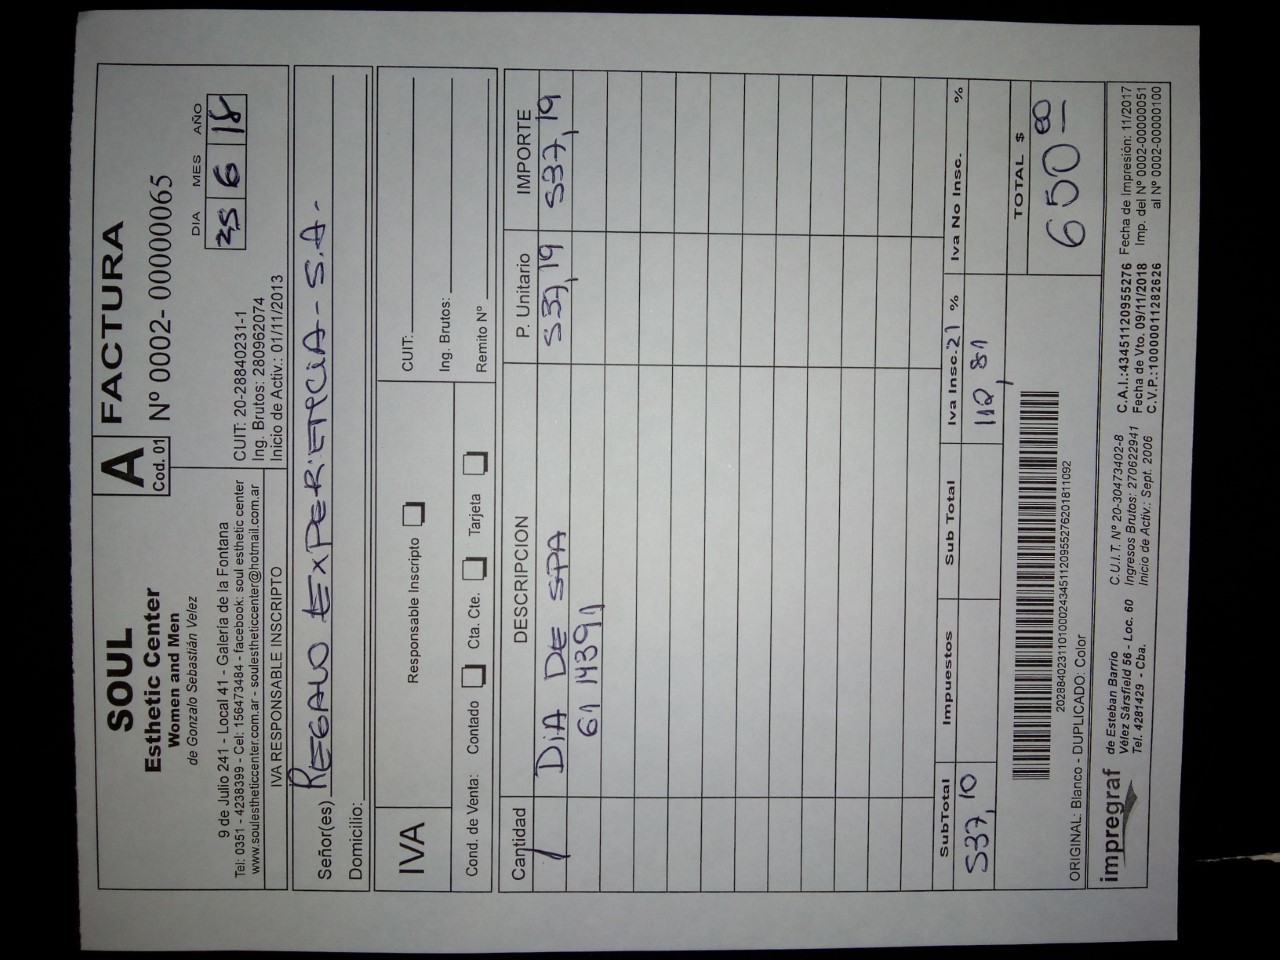 SOUL
Esthetic Center
Women and Men
de Gonzalo Sebastián Velez
9 de Julio 241 - Local 41 - Galería de la Fontana
Tel: 0351 - 4238399 - Cel: 156473484 - facebook: soul esthetic center
www.soulestheticcenter.com.ar - soulestheticcenter@hotmail.com.ar
IVA RESPONSABLE INSCRIPTO
A
Cod. 01
FACTURA
Nº 0002- 00000065
DIA MES AÑO
25 6 18
CUIT: 20-28840231-1
Ing. Brutos: 280962074
Inicio de Activ.: 01/11/2013
Señor(es) REGALO EXPERIENCIA - S.A.-
Domicilio:
IVA
Responsable Inscripto
CUIT:
Ing. Brutos:
Cond. de Venta: Contado Cta. Cte. Tarjeta
Remito Nº
Cantidad DESCRIPCION P. Unitario IMPORTE
1 DIA DE SPA 537,19 537,19
6114391
SubTotal Impuestos Sub Total Iva Insc. 21 % Iva No Insc. %
537,10 112,81
TOTAL $
650 00
2028840231101000243451120955276201811092
ORIGINAL: Blanco - DUPLICADO: Color
impregraf
de Esteban Barrio
Vélez Sársfield 56 - Loc. 60
Tel. 4281429 - Cba.
C.U.I.T. Nº 20-30473402-8
Ingresos Brutos: 270622941
Inicio de Activ.: Sept. 2006
C.A.I.:43451120955276
Fecha de Vto. 09/11/2018
C.V.P.:10000011282626
Fecha de Impresión: 11/2017
Imp. del Nº 0002-00000051
al Nº 0002-00000100